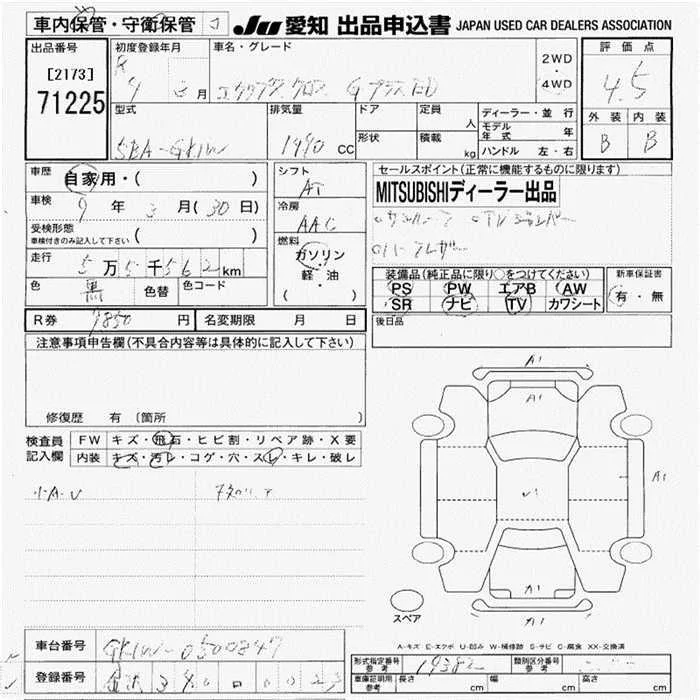 車内保管・守衛保管
JU 愛知 出品申込書 JAPAN USED CAR DEALERS ASSOCIATION
出品番号
[2173]
71225
初度登録年月
月
車名・グレード
2WD
・
4WD
評価点
4.5
外装 内装
B B
型式
5BA-GK1W
排気量
1490 CC
ドア
形状
定員
人
積載
kg
ディーラー・並行
モデル年式 年
ハンドル 左・右
車歴
自家用・( )
車検
9 年 3 月 (30 日)
受検形態
車検付きのみ記入して下さい ( )
走行
5 万 5 千 562 km
色
黒
色替
色コード
シフト
AT
冷房
AAC
燃料
ガソリン
軽・油
( )
セールスポイント(正常に機能するものに限ります)
MITSUBISHIディーラー出品
装備品(純正品に限り○をつけてください)
PS PW エアB AW
SR ナビ TV カワシート
新車保証書
有・無
後日品
R券
円
名変期限 月 日
注意事項申告欄(不具合内容等は具体的に記入して下さい)
修復歴 有 (箇所 )
検査員
記入欄
FW キズ・飛石・ヒビ割・リペア跡・X要
内装 キズ・汚レ・コゲ・穴・スレ・キレ・破レ
小A・U
A1
A1
A1
A1
スペア
A-キズ E-エクボ U-凹み W-補修跡 S-サビ C-腐食 XX-交換済
車台番号
GK1W-0500847
登録番号
形式指定番号
参考
19382
類別区分番号
参考
車庫証明用
参考
長さ cm 幅 cm 高さ cm